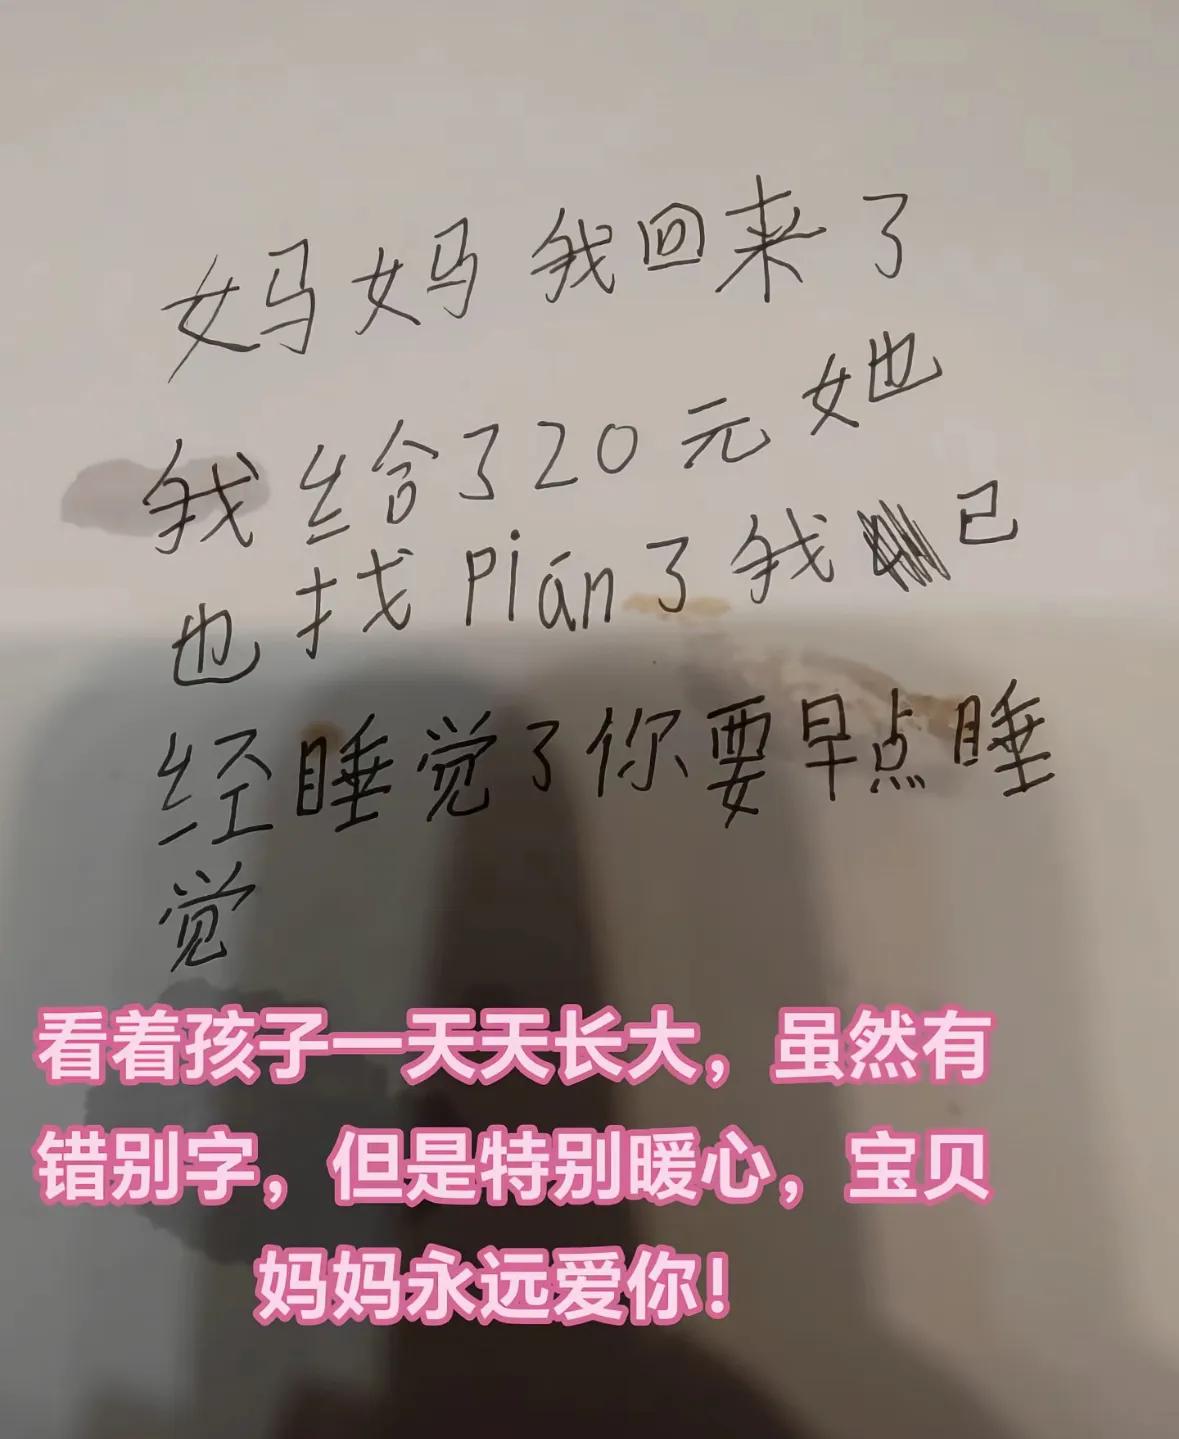 妈妈我回来了
我给了20元她
也找Pián了我已
经睡觉了你要早点睡
觉
看着孩子一天天长大，虽然有
错别字，但是特别暖心，宝贝
妈妈永远爱你！